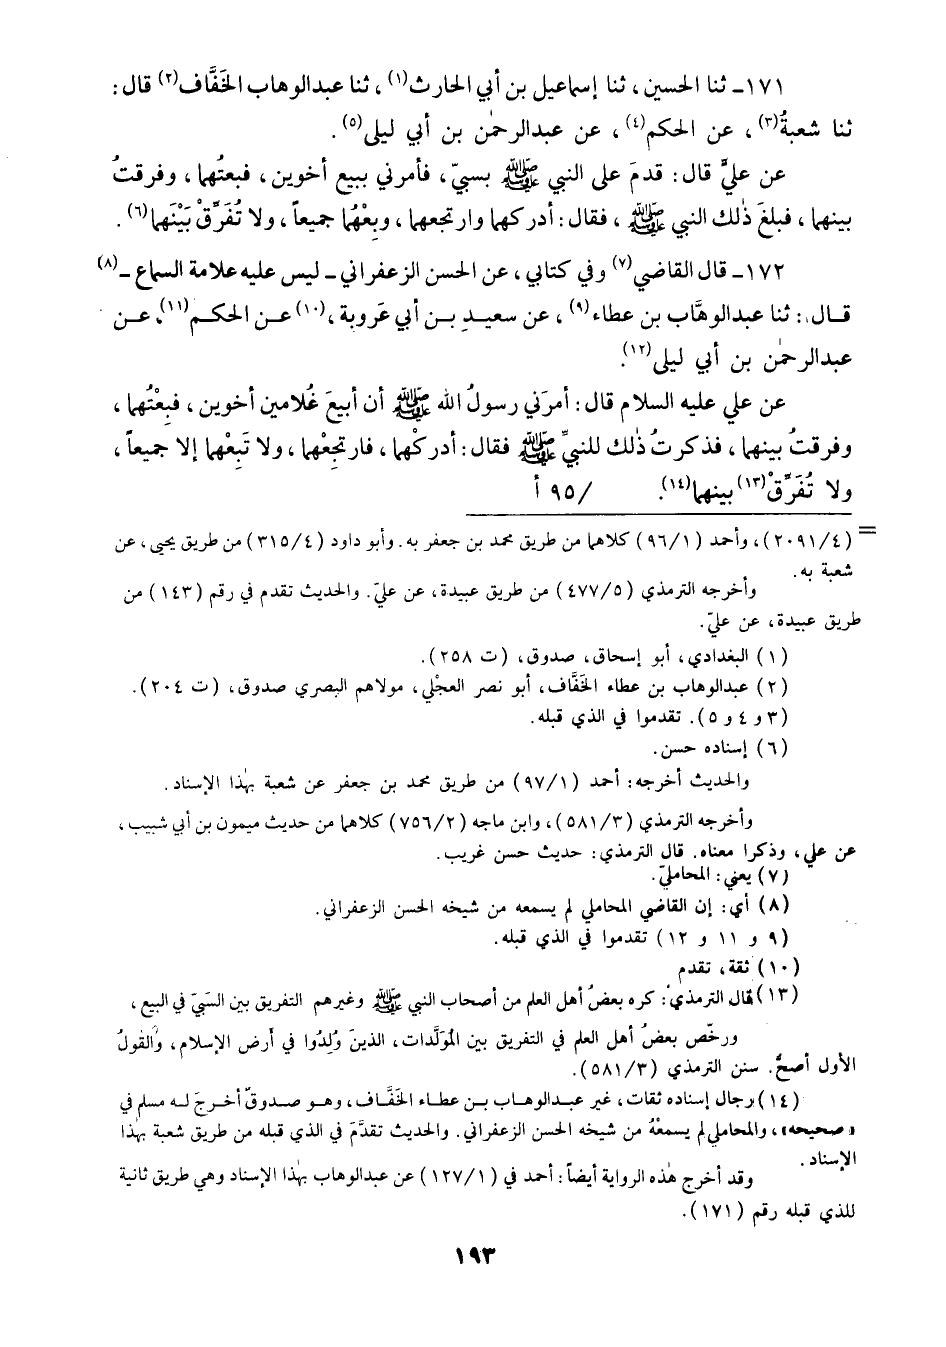 ١٧١ـ ثنا الحسين، ثنا إسماعيل بن أبي الحارث(١)، ثنا عبدالوهاب الخَفَّاف(٢) قال:
ثنا شعبةُ(٣)، عن الحكم(٤)، عن عبدالرحمٰن بن أبي ليلى(٥).
عن عليٍّ قال: قدمَ على النبي ﷺ بسبيّ، فأمرني ببيع أخوين، فبعتُهما، وفرقتُ
بينهما، فبلغَ ذٰلك النبي ﷺ، فقال: أدركهما وارتجعها، وبِعْهُما جميعاً، ولا تُفَرِّقْ بَيْنَهما(٦).
١٧٢ـ قال القاضي(٧) وفي كتابي، عن الحسن الزعفراني ـ ليس عليه علامة السماع ـ(٨)
قـال: ثنا عبدالوهَّاب بن عطاء(٩)، عن سعيـدِ بـن أبي عَروبة،(١٠) عـن الحكـم(١١)، عـن
عبدالرحمٰن بن أبي ليلى(١٢).
عن علي عليه السلام قال: أمرَني رسولُ الله ﷺ أن أبيعَ غُلامين أخوين، فبِعْتُهما،
وفرقتُ بينهما، فذكرتُ ذٰلك للنبيِّ ﷺ فقال: أدركْهما، فارتجِعْهما، ولا تَبِعْهما إلا جميعاً،
ولا تُفَرِّقْ(١٣) بينهما(١٤). /٩٥ أ
= (٢٠٩١/٤)، وأحمد (٩٦/١) كلاهما من طريق محمد بن جعفر به. وأبو داود (٣١٥/٤) من طريق يحيى، عن
شعبة به.
وأخرجه الترمذي (٤٧٧/٥) من طريق عبيدة، عن عليّ. والحديث تقدم في رقم (١٤٣) من
طريق عبيدة، عن عليّ.
(١) البغدادي، أبو إسحاق، صدوق، (ت ٢٥٨).
(٢) عبدالوهاب بن عطاء الخَفَّاف، أبو نصر العجْلي، مولاهم البصري صدوق، (ت ٢٠٤).
(٣ و ٤ و ٥). تقدموا في الذي قبله.
(٦) إسناده حسن.
والحديث أخرجه: أحمد (٩٧/١) من طريق محمد بن جعفر عن شعبة بهٰذا الإسناد.
وأخرجه الترمذي (٥٨١/٣)، وابن ماجه (٧٥٦/٢) كلاهما من حديث ميمون بن أبي شبيب،
عن علي، وذكرا معناه. قال الترمذي: حديث حسن غريب.
(٧) يعني: المحامليّ.
(٨) أي: إن القاضي المحاملي لم يسمعه من شيخه الحسن الزعفراني.
(٩ و ١١ و ١٢) تقدموا في الذي قبله.
(١٠) ثقة، تقدم
(١٣) قال الترمذي: كره بعضُ أهل العلم من أصحاب النبي ﷺ وغيرهم التفريق بين السَّبيّ في البيع،
ورخّص بعضُ أهل العلم في التفريق بين المُوَلَّدات، الذينَ وُلِدُوا في أرض الإسلام، والقولُ
الأول أصحُّ. سنن الترمذي (٥٨١/٣).
(١٤) رجال إسناده ثقات، غير عبدالوهاب بـن عطـاء الخفَّـاف، وهـو صـدوقٌ أخـرجَ لـه مسلم في
«صحيحه»، والمحاملي لم يسمعْهُ من شيخه الحسن الزعفراني. والحديث تقدَّمَ في الذي قبله من طريق شعبة بهٰذا
الإسناد.
وقد أخرج هٰذه الرواية أيضاً: أحمد في (١٢٧/١) عن عبدالوهاب بهٰذا الإسناد وهي طريق ثانية
للذي قبله رقم (١٧١).
١٩٣